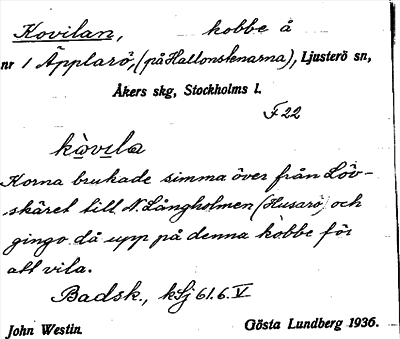 Kovilan, kobbe å
nr 1 Äpplarö, (på Hallonstenarna), Ljusterö sn,
Åkers skg, Stockholms l.
F 22
kòvila
Korna brukade simma över från Löv-
skäret till N. Långholmen (Husarö) och
gingo då upp på denna kobbe för
att vila.
Badsk., kSj 61.6. V
John Westin. Gösta Lundberg 1936.